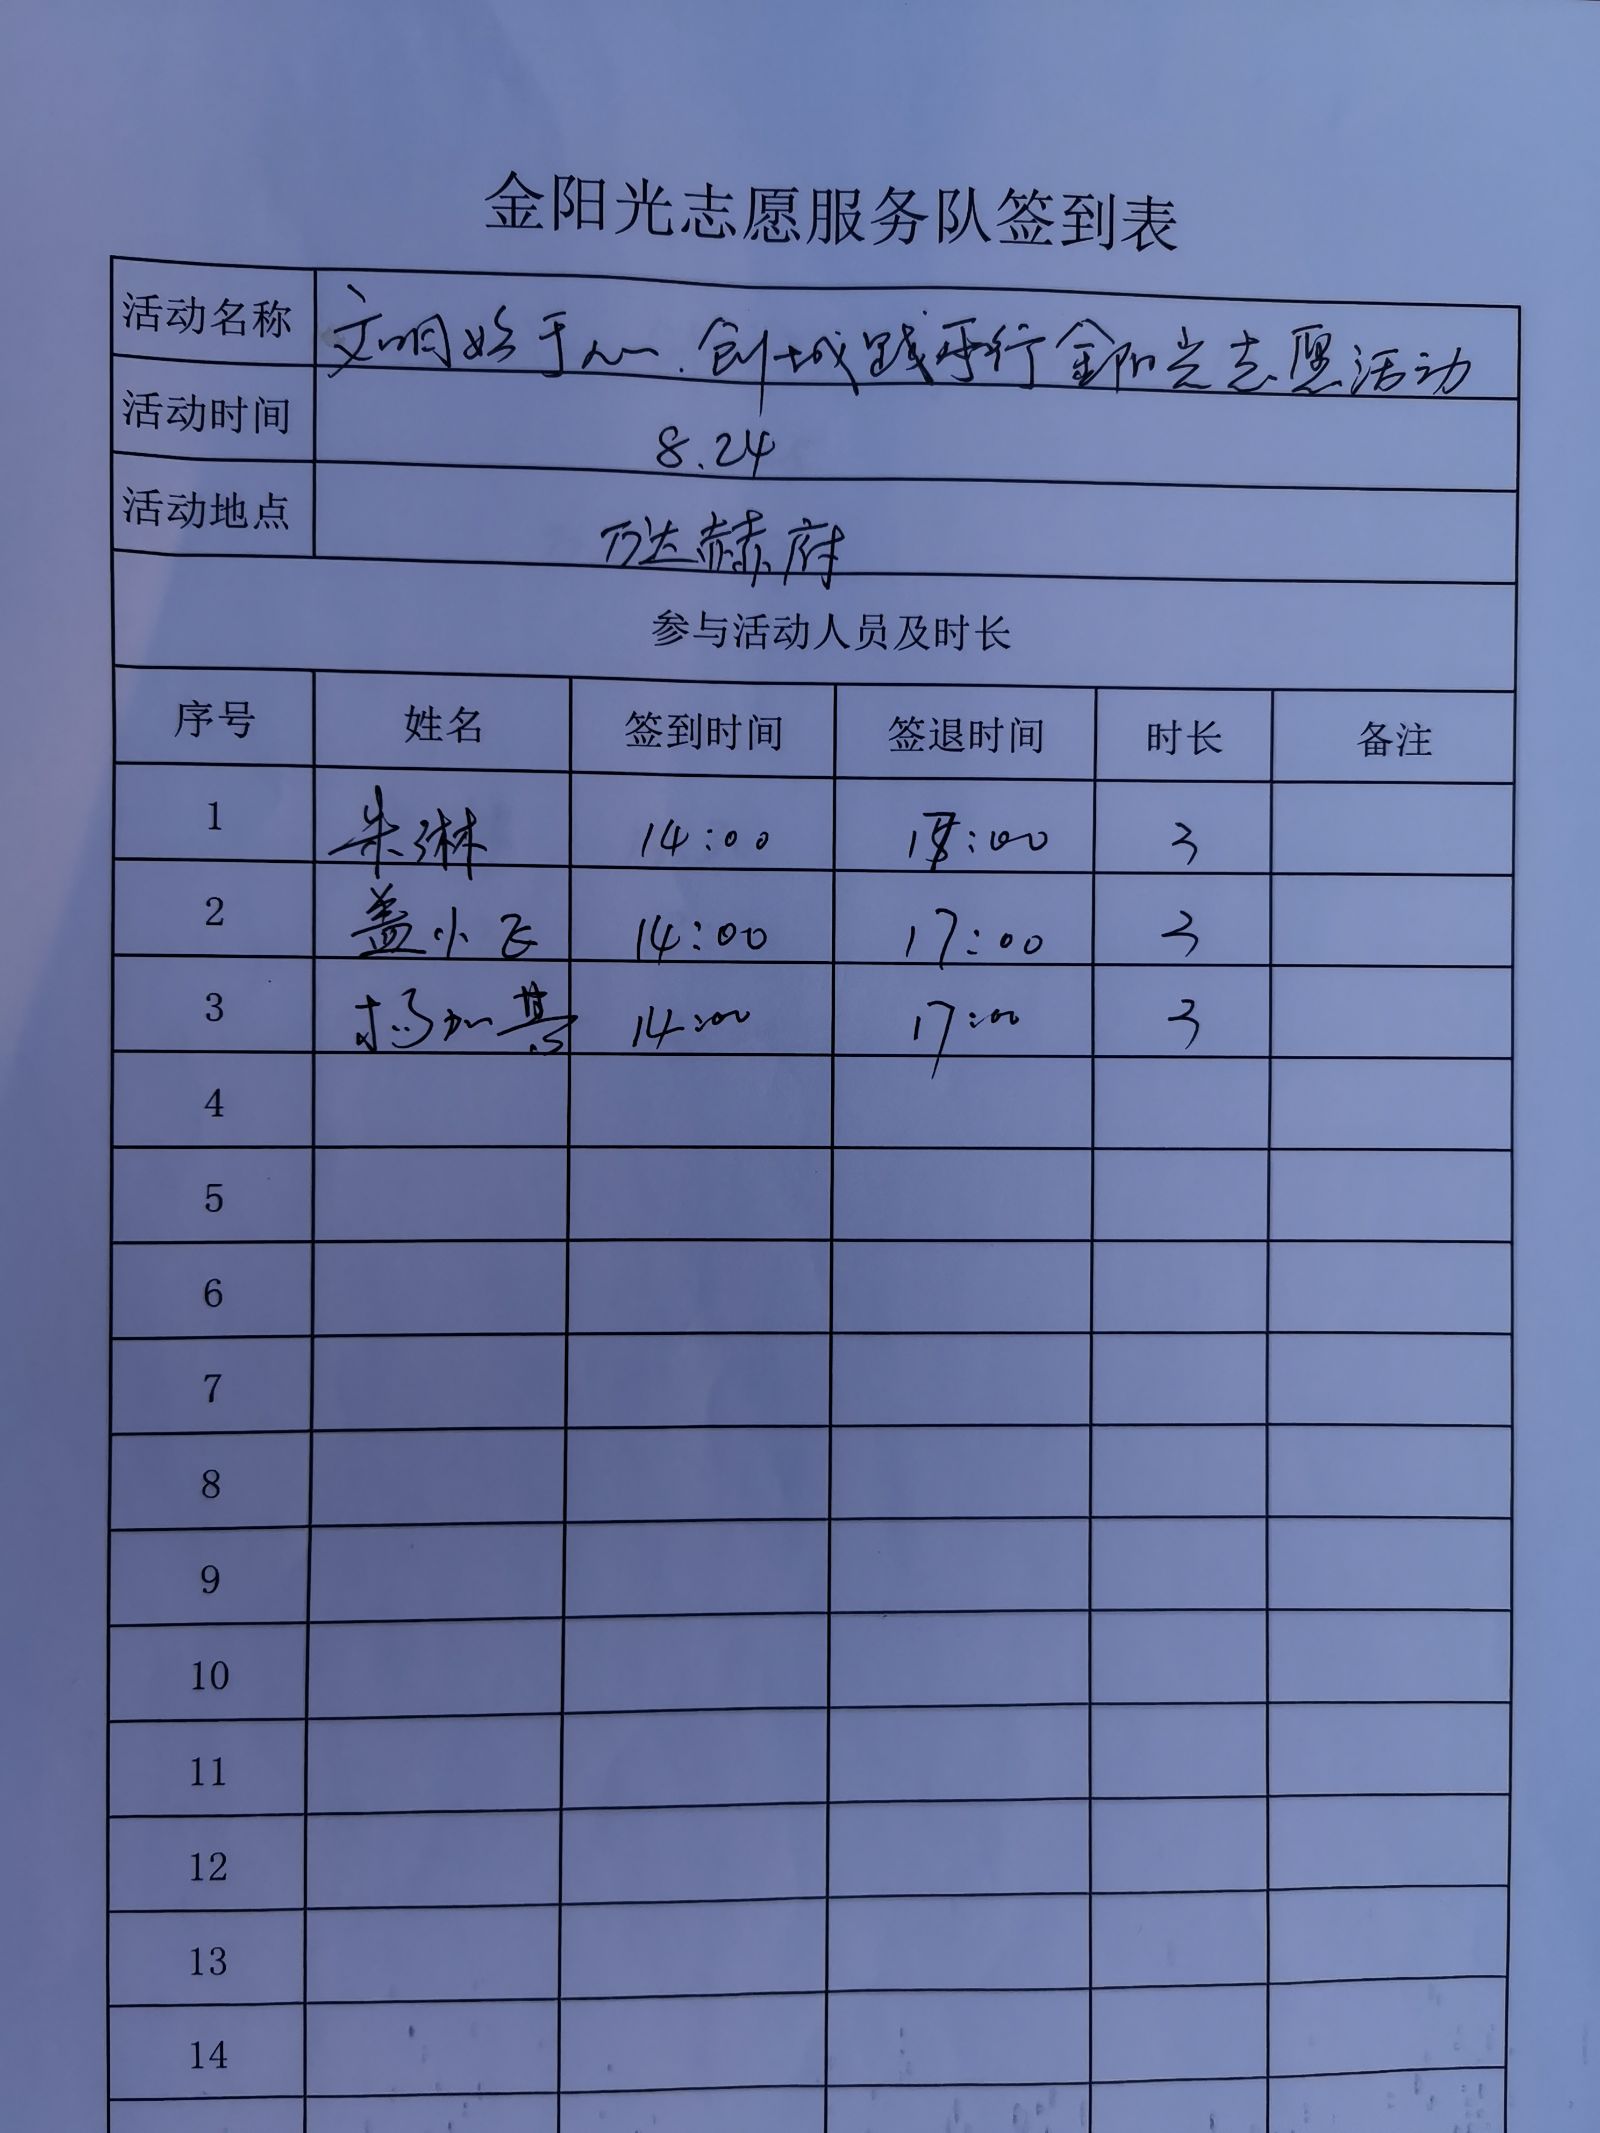 金阳光志愿服务队签到表
活动名称 文明始于心.创城践于行金阳光志愿活动
活动时间 8.24
活动地点 万达赫府
参与活动人员及时长
序号 姓名 签到时间 签退时间 时长 备注
1 朱琳 14:00 :00 3
2 盖小飞 14:00 17:00 3
3 杨加其 14:00 17:00 3
4
5
6
7
8
9
10
11
12
13
14